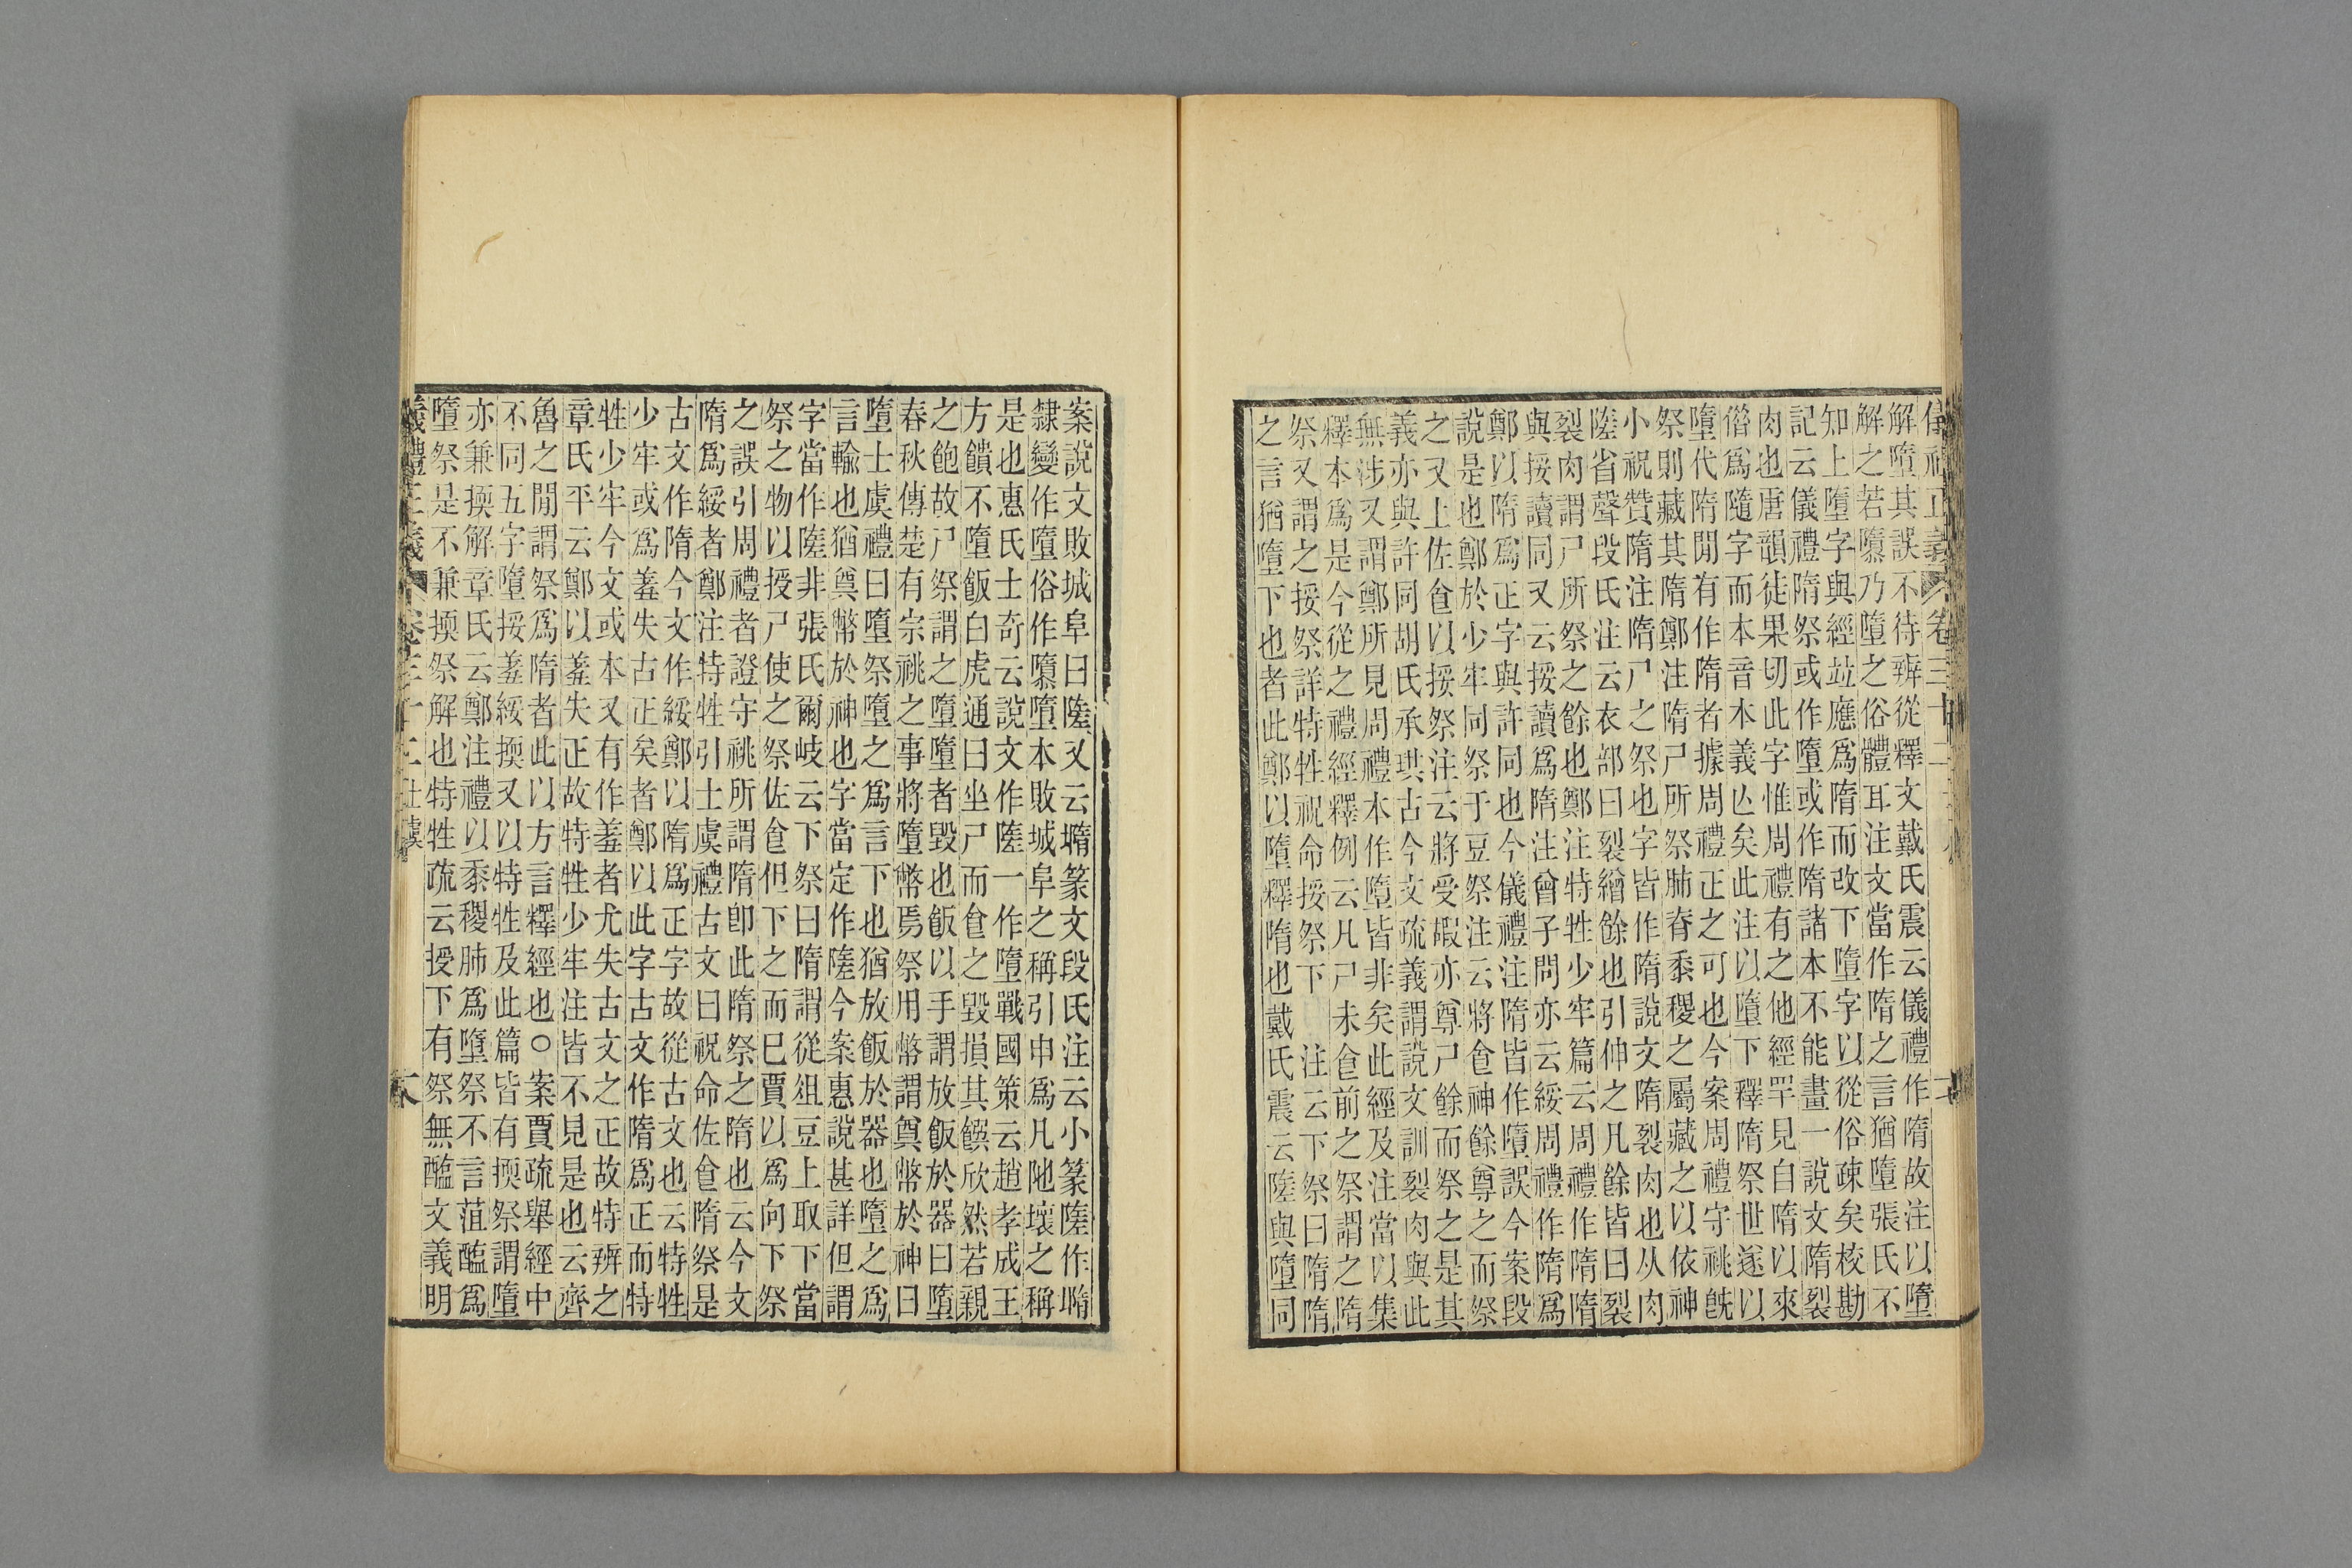 儀禮正義 卷三十二
解墮其誤不待辨從釋文戴氏震云儀禮作隋故注以墮
解之若隳乃墮之俗體耳注文當作隋之言猶墮張氏不
知上墮字與經竝應爲隋而改下墮字以從俗疎矣校勘
記云儀禮隋祭或作墮或作隋諸本不能畫一說文隋裂
肉也唐韻徒果切此字惟周禮有之他經罕見自隋以來
僣爲隨字而本音本義亾矣此注以墮下釋隋祭世遂以
墮代隋閒有作隋者據周禮正之可也今案周禮守祧旣
祭則藏其隋鄭注隋尸所祭肺脊黍稷之屬藏之以依神
小祝贊隋注隋尸之祭也字皆作隋說文隋裂肉也从肉
隓省聲段氏注云衣部曰裂繒餘也引伸之凡餘皆曰裂
裂肉謂尸所祭之餘也鄭注特牲少牢篇云周禮作隋隋
與挼讀同又云挼讀爲隋注曾子問亦云綏周禮作隋爲
鄭以隋爲正字與許同也今儀禮注隋皆作墮誤今案段
說是也鄭於少牢同祭于豆祭注云將食神餘尊之而祭
之又上佐食以挼祭注云將受嘏亦尊尸餘而祭之是其
義亦與許同胡氏承珙古今文疏義謂說文訓裂肉與此
無涉又謂鄭所見周禮本作墮皆非矣此經及注當以集
釋本爲是今從之禮經釋例云凡尸未食前之祭謂之隋
祭又謂之挼祭詳特牲祝命挼祭下　注云下祭曰隋隋
之言猶墮下也者此鄭以墮釋隋也戴氏震云隓與墮同
案說文敗城阜曰隓又云𡐦篆文段氏注云小篆隓作𡐦
隸變作墮俗作隳墮本敗城阜之稱引申爲凡陁壞之稱
是也惠氏士奇云說文作隓一作墮戰國策云趙孝成王
方饋不墮飯白虎通曰坐尸而食之毀損其饌欣然若親
之飽故尸祭謂之墮墮者毀也飯以手謂放飯於器曰墮
春秋傳楚有宗祧之事將墮幣焉祭用幣謂奠幣於神曰
墮士虞禮曰墮祭墮之爲言下也猶放飯於器也墮之爲
言輸也猶奠幣於神也字當定作隓今案惠說甚詳但謂
字當作隓非張氏爾岐云下祭曰隋謂從俎豆上取下當
祭之物以授尸使之祭佐食但下之而已賈以爲向下祭
之誤引周禮者證守祧所謂隋卽此隋祭之隋也云今文
隋爲綏者鄭注特牲引士虞禮古文曰祝命佐食隋祭是
古文作隋今文作綏鄭以隋爲正字故從古文也云特牲
少牢或爲羞失古正矣者鄭以此字古文作隋爲正而特
牲少牢今文或本又有作羞者尤失古文之正故特辨之
章氏平云鄭以羞失正故特牲少牢注皆不見是也云齊
魯之閒謂祭爲隋者此以方言釋經也○案賈疏舉經中
不同五字墮挼羞綏㨎又以特牲及此篇皆有㨎祭謂墮
亦兼㨎解章氏云鄭注禮以黍稷肺爲墮祭不言菹醢爲
墮祭是不兼㨎祭解也特牲疏云授下有祭無醢文義明
儀禮正義 卷三十二 士虞